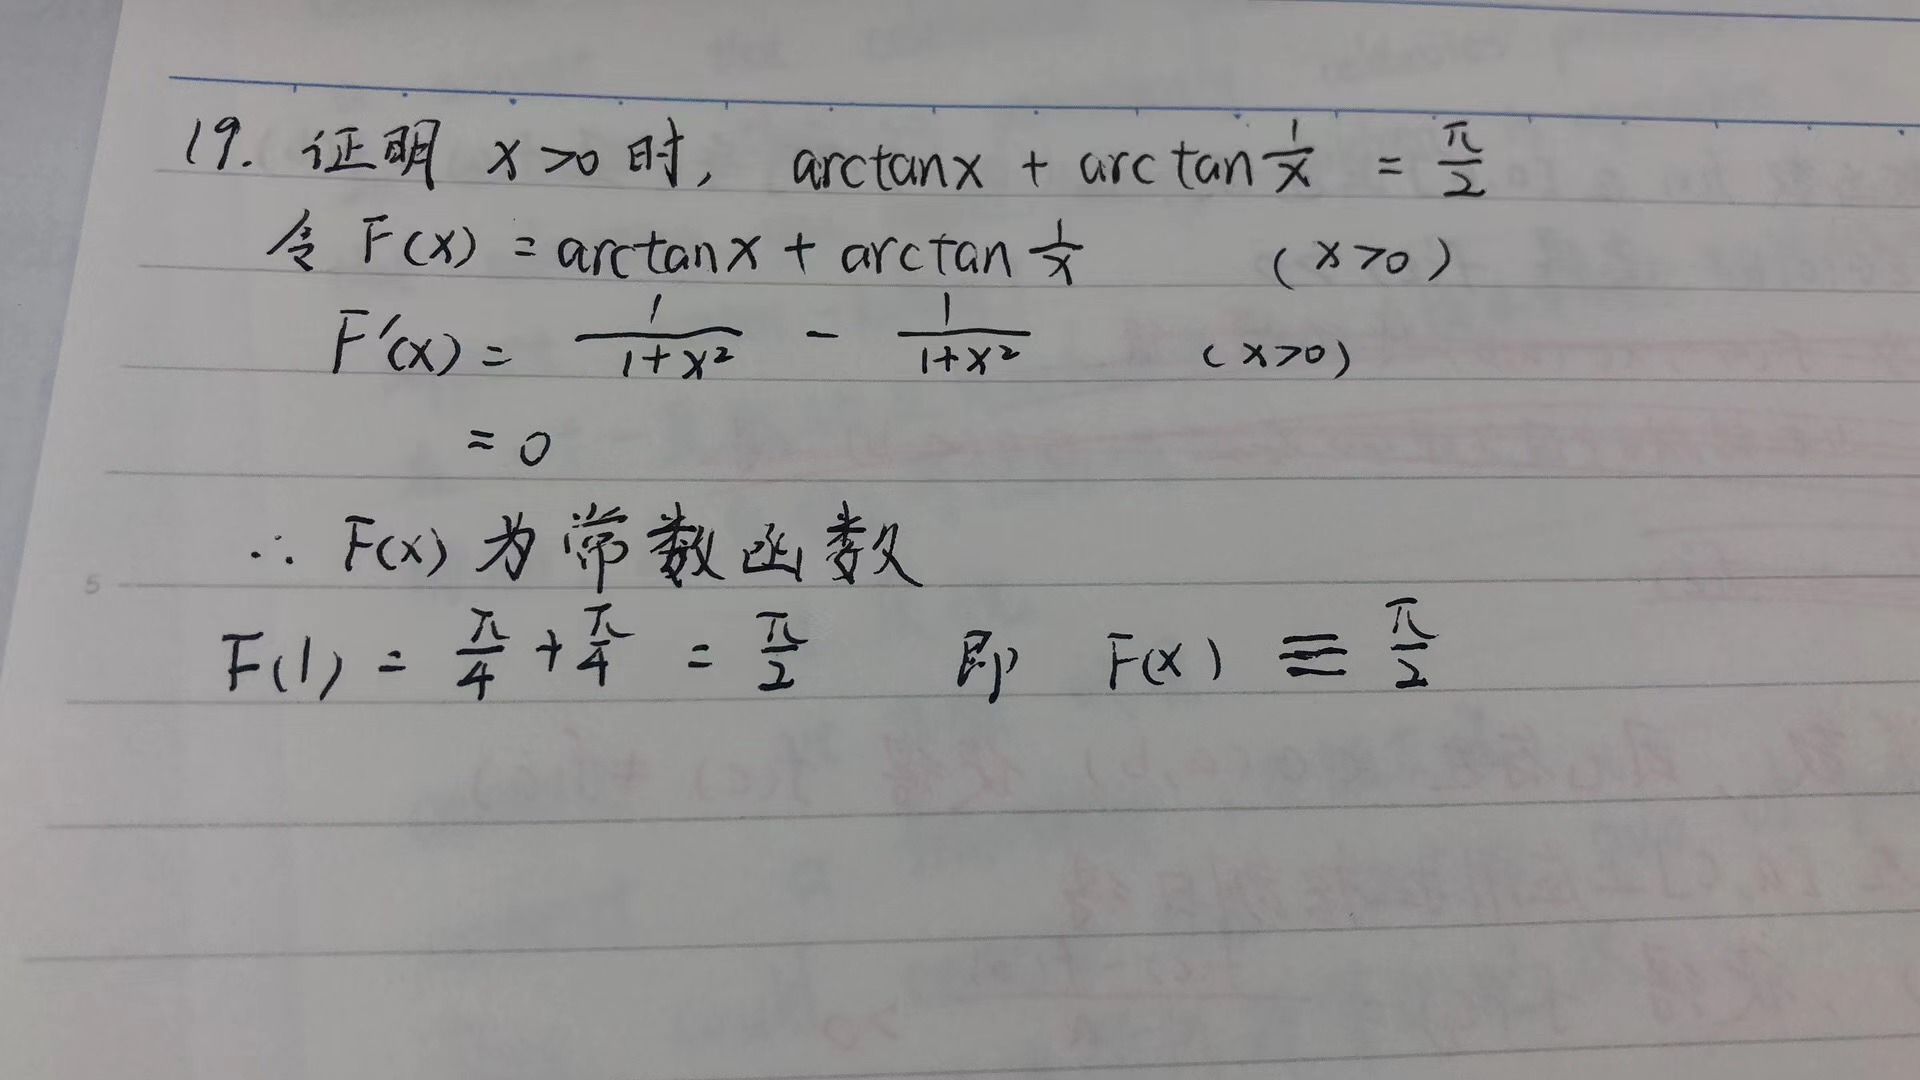 19. 证明 x>0 时, arctanx + arctan 1/x = π/2
令 F(x) = arctanx + arctan 1/x (x>0)
F'(x) = 1/(1+x²) - 1/(1+x²) (x>0)
= 0
∴ F(x) 为常数函数
5
F(1) = π/4 + π/4 = π/2 即 F(x) ≡ π/2